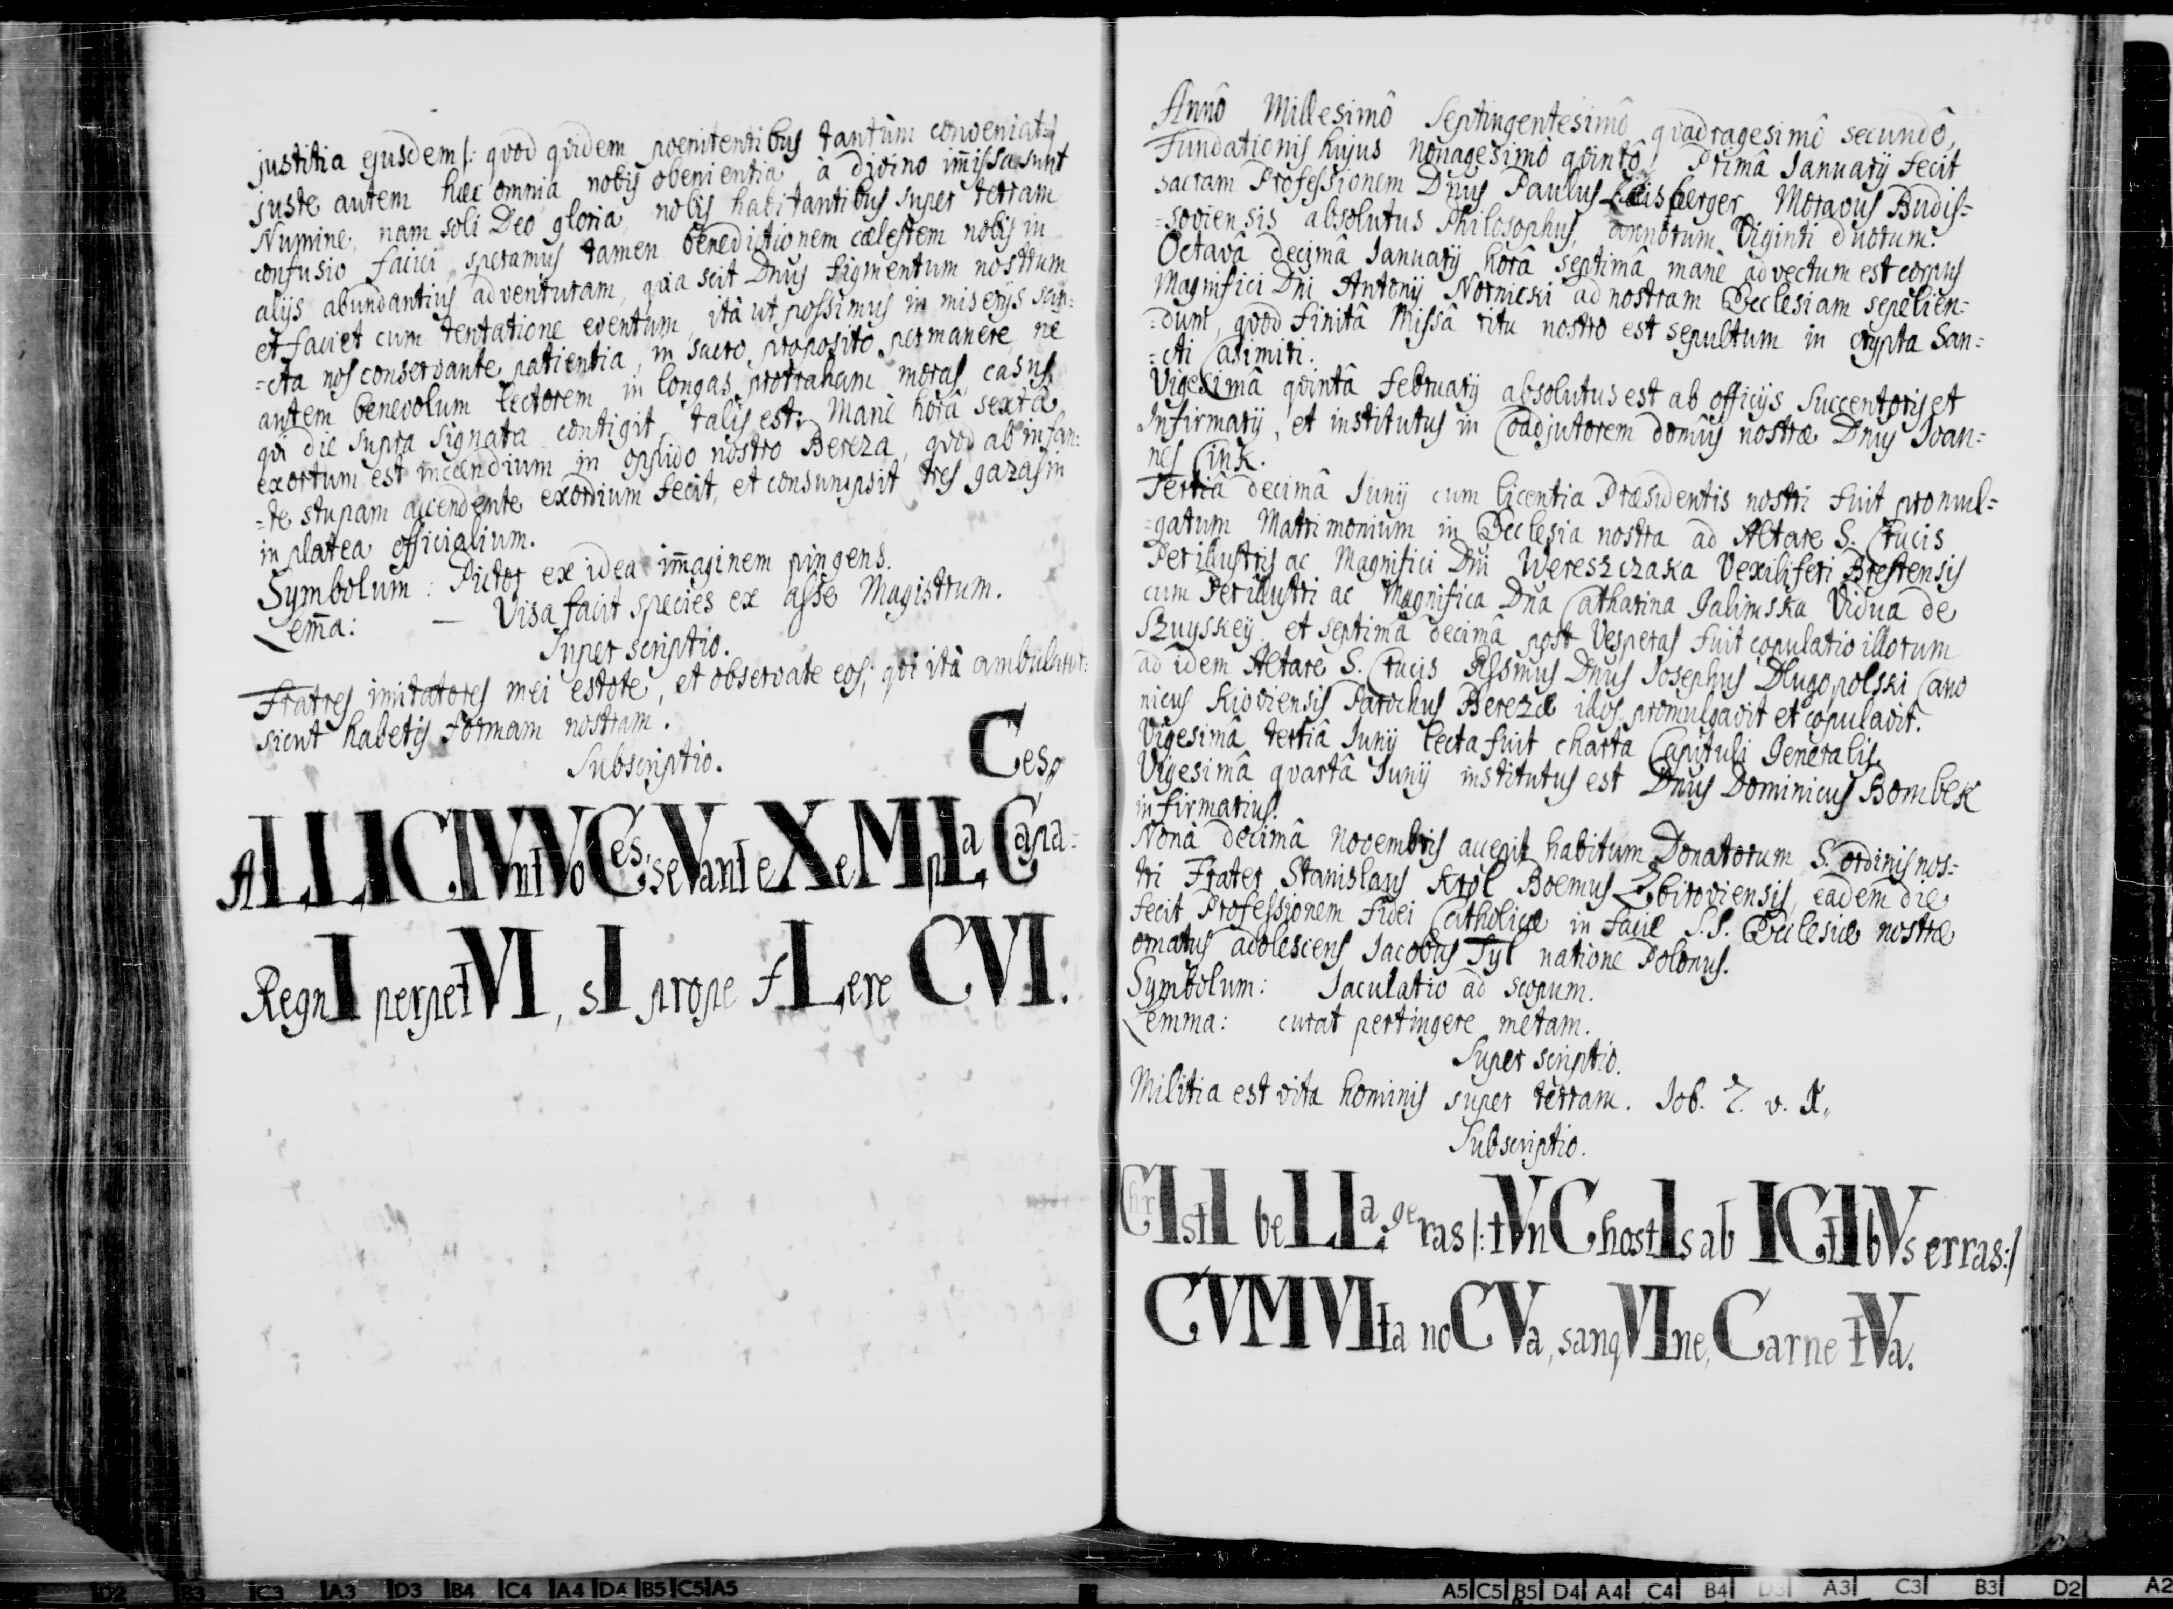 justitia ejusdem |: quod quidem poenitentibus tantùm conveniat :|
juste autem hæc omnia nobis obenientia à divino im̃issa sunt
Numine, nam soli Deo gloria, nobis habitantibus super terram
confusio faciei, speramus tamen benedictionem cælestem nobis in
alijs abundantius adventuram, quia scit Dnus figmentum nostrum
et faciet cum tentatione eventum, ità ut possimus in miserijs san:
=cta nos conservante patientia, in sacro proposito permanere, ne
autem benevolum Lectorem in longas protraham moras, casus
qui die supra signata contigit talis est: Manè horâ sextâ
exortum est incendium in oppido nostro Bereza, quod ab infan:
=te stupam accendente exordium fecit, et consumpsit tres gazas in
in platea officialium.
Symbolum: Pictor ex idea im̃aginem pingens.
Lem̃a: — Visa facit species ex asse Magistrum.
Super scriptio.
Fratres imitatores mei estote, et observate eos, qui ità ambulant:
sicut habetis formam nostram.
Subscriptio.
Cesp
ALLICIVntVoCes, seVant eXeMpLa Capa=
RegnI perpetVI, sI prope fLere CVI.
178
Annô Millesimô Septingentesimô quadragesimô secundô,
Fundationis hujus Nonagesimô quintô, Primâ Januarij fecit
sacram Professionem Dnus Paulus Moravus Budis=
=soviensis absolutus Philosophus, annorum Viginti duorum.
Octavâ decimâ Januarij horâ septimâ manè advectum est corpus
Magnifici Dni Antonij Nornicki ad nostram Ecclesiam sepelien=
=dum, quod finitâ Missâ ritu nostro est sepultum in crypta San=
=cti Casimiri.
Vigesimâ quintâ Februarij absolutus est ab officijs Succentoris et
Infirmarij, et institutus in Coadjutorem domûs nostræ Dnus Joan=
nes Cink.
Tertiâ decimâ Junij cum licentia Præsidentis nostri fuit promul=
=gatum Matrimonium in Ecclesia nostra ad Altare S. Crucis
Perillustris ac Magnifici Dni Wereszczaka Vexiliferi Brestensis
cum Perillustri ac Magnifica Dña Catharina Jalimska Vidua de
Szuyskey, et septimâ decimâ post Vesperas fuit copulatio illorum
ad idem Altare S. Crucis Rssmus Dnus Josephus Dlugopolski Cano
nicus Kioviensis Parochus Berezæ illos promulgavit et copulavit.
Vigesimâ tertiâ Junij lecta fuit charta Capituli Generalis.
Vigesimâ quartâ Junij institutus est Dnus Dominicus Bombek
infirmarius.
Nonâ decimâ Novembris accepit habitum Donatorum S. ordinis nos=
tri Frater Stanislaus Król Boemus Zbiroviensis, eadem die
fecit Professionem fidei Catholicæ in facie S.S. Ecclesiæ nostræ
ornatus adolescens Jacobus Tyl natione Polonus.
Symbolum: Jaculatio ad scopum.
Lemma: curat pertingere metam.
Super scriptio.
Militia est vita hominis super terram. Job. 7. v. 1.
Subscriptio.
ChrIstI beLLa geras |: tVnC hostIs ab ICtIbVs erras :|
CVM VIta noCVa, sanqVIne, Carne tVa.